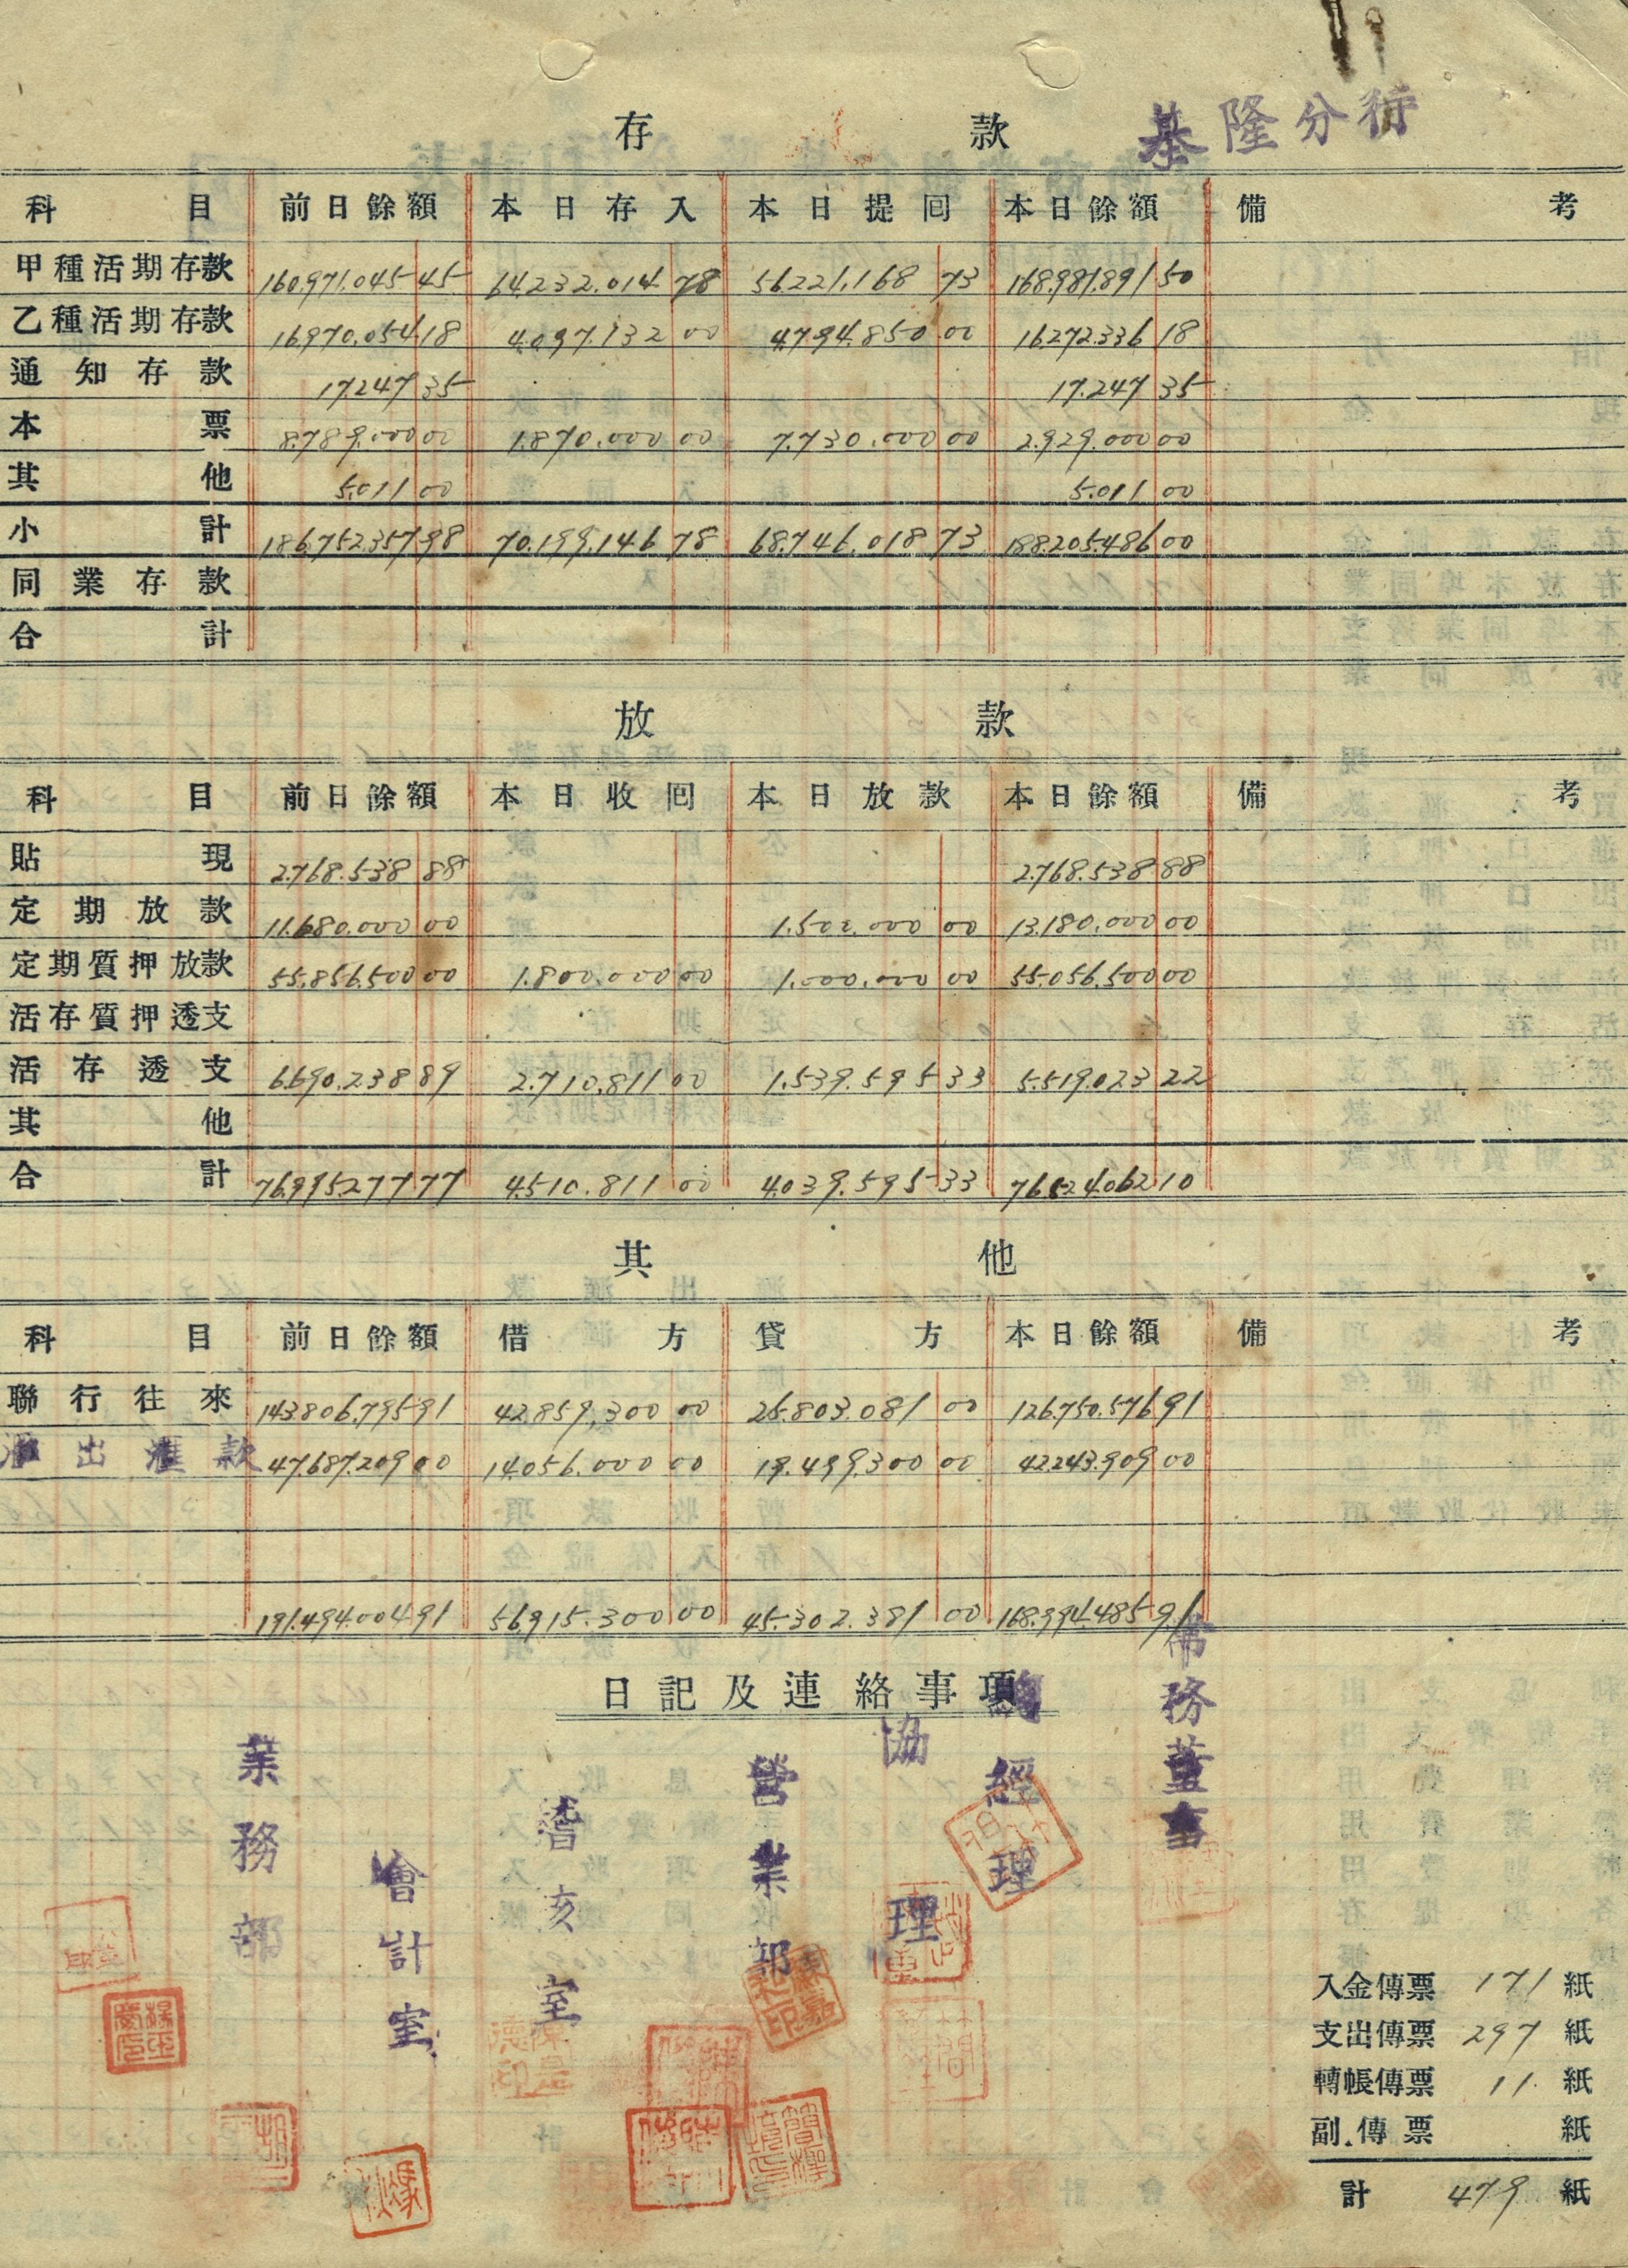 基隆分行
存 款
科目 前日餘額 本日存入 本日提回 本日餘額 備考
甲種活期存款 160.971.045 45 64.232.014 78 56.221.168 73 168.981.891 50
乙種活期存款 16.970.054 18 4.097.132 00 4.794.850 00 16.272.336 18
通知存款 17.247 35 17.247 35
本票 8.789.000 00 1.870.000 00 7.730.000 00 2.929.000 00
其他 5.011 00 5.011 00
小計 186.752.357 98 70.199.146 78 68.746.018 73 188.205.486 00
同業存款
合計
放 款
科目 前日餘額 本日收回 本日放款 本日餘額 備考
貼現 2.768.538 88 2.768.538 88
定期放款 11.680.000 00 1.500.000 00 13.180.000 00
定期質押放款 55.856.500 00 1.800.000 00 1.000.000 00 55.056.500 00
活存質押透支
活存透支 6.690.238 89 2.710.811 00 1.539.595 33 5.519.023 22
其他
合計 76.995.277 77 4.510.811 00 4.039.595 33 76.524.062 10
其 他
科目 前日餘額 借方 貸方 本日餘額 備考
聯行往來 143.806.795 91 42.859.300 00 25.803.081 00 126.750.576 91
匯出匯款 47.687.209 00 14.056.000 00 19.499.300 00 42.243.909 00
191.494.004 91 56.915.300 00 45.302.381 00 168.994.485 91
日記及連絡事項
常務董事
經理
協理
營業部
稽亥室
會計室
業務部
入金傳票 171 紙
支出傳票 297 紙
轉帳傳票 11 紙
副傳票 紙
計 479 紙